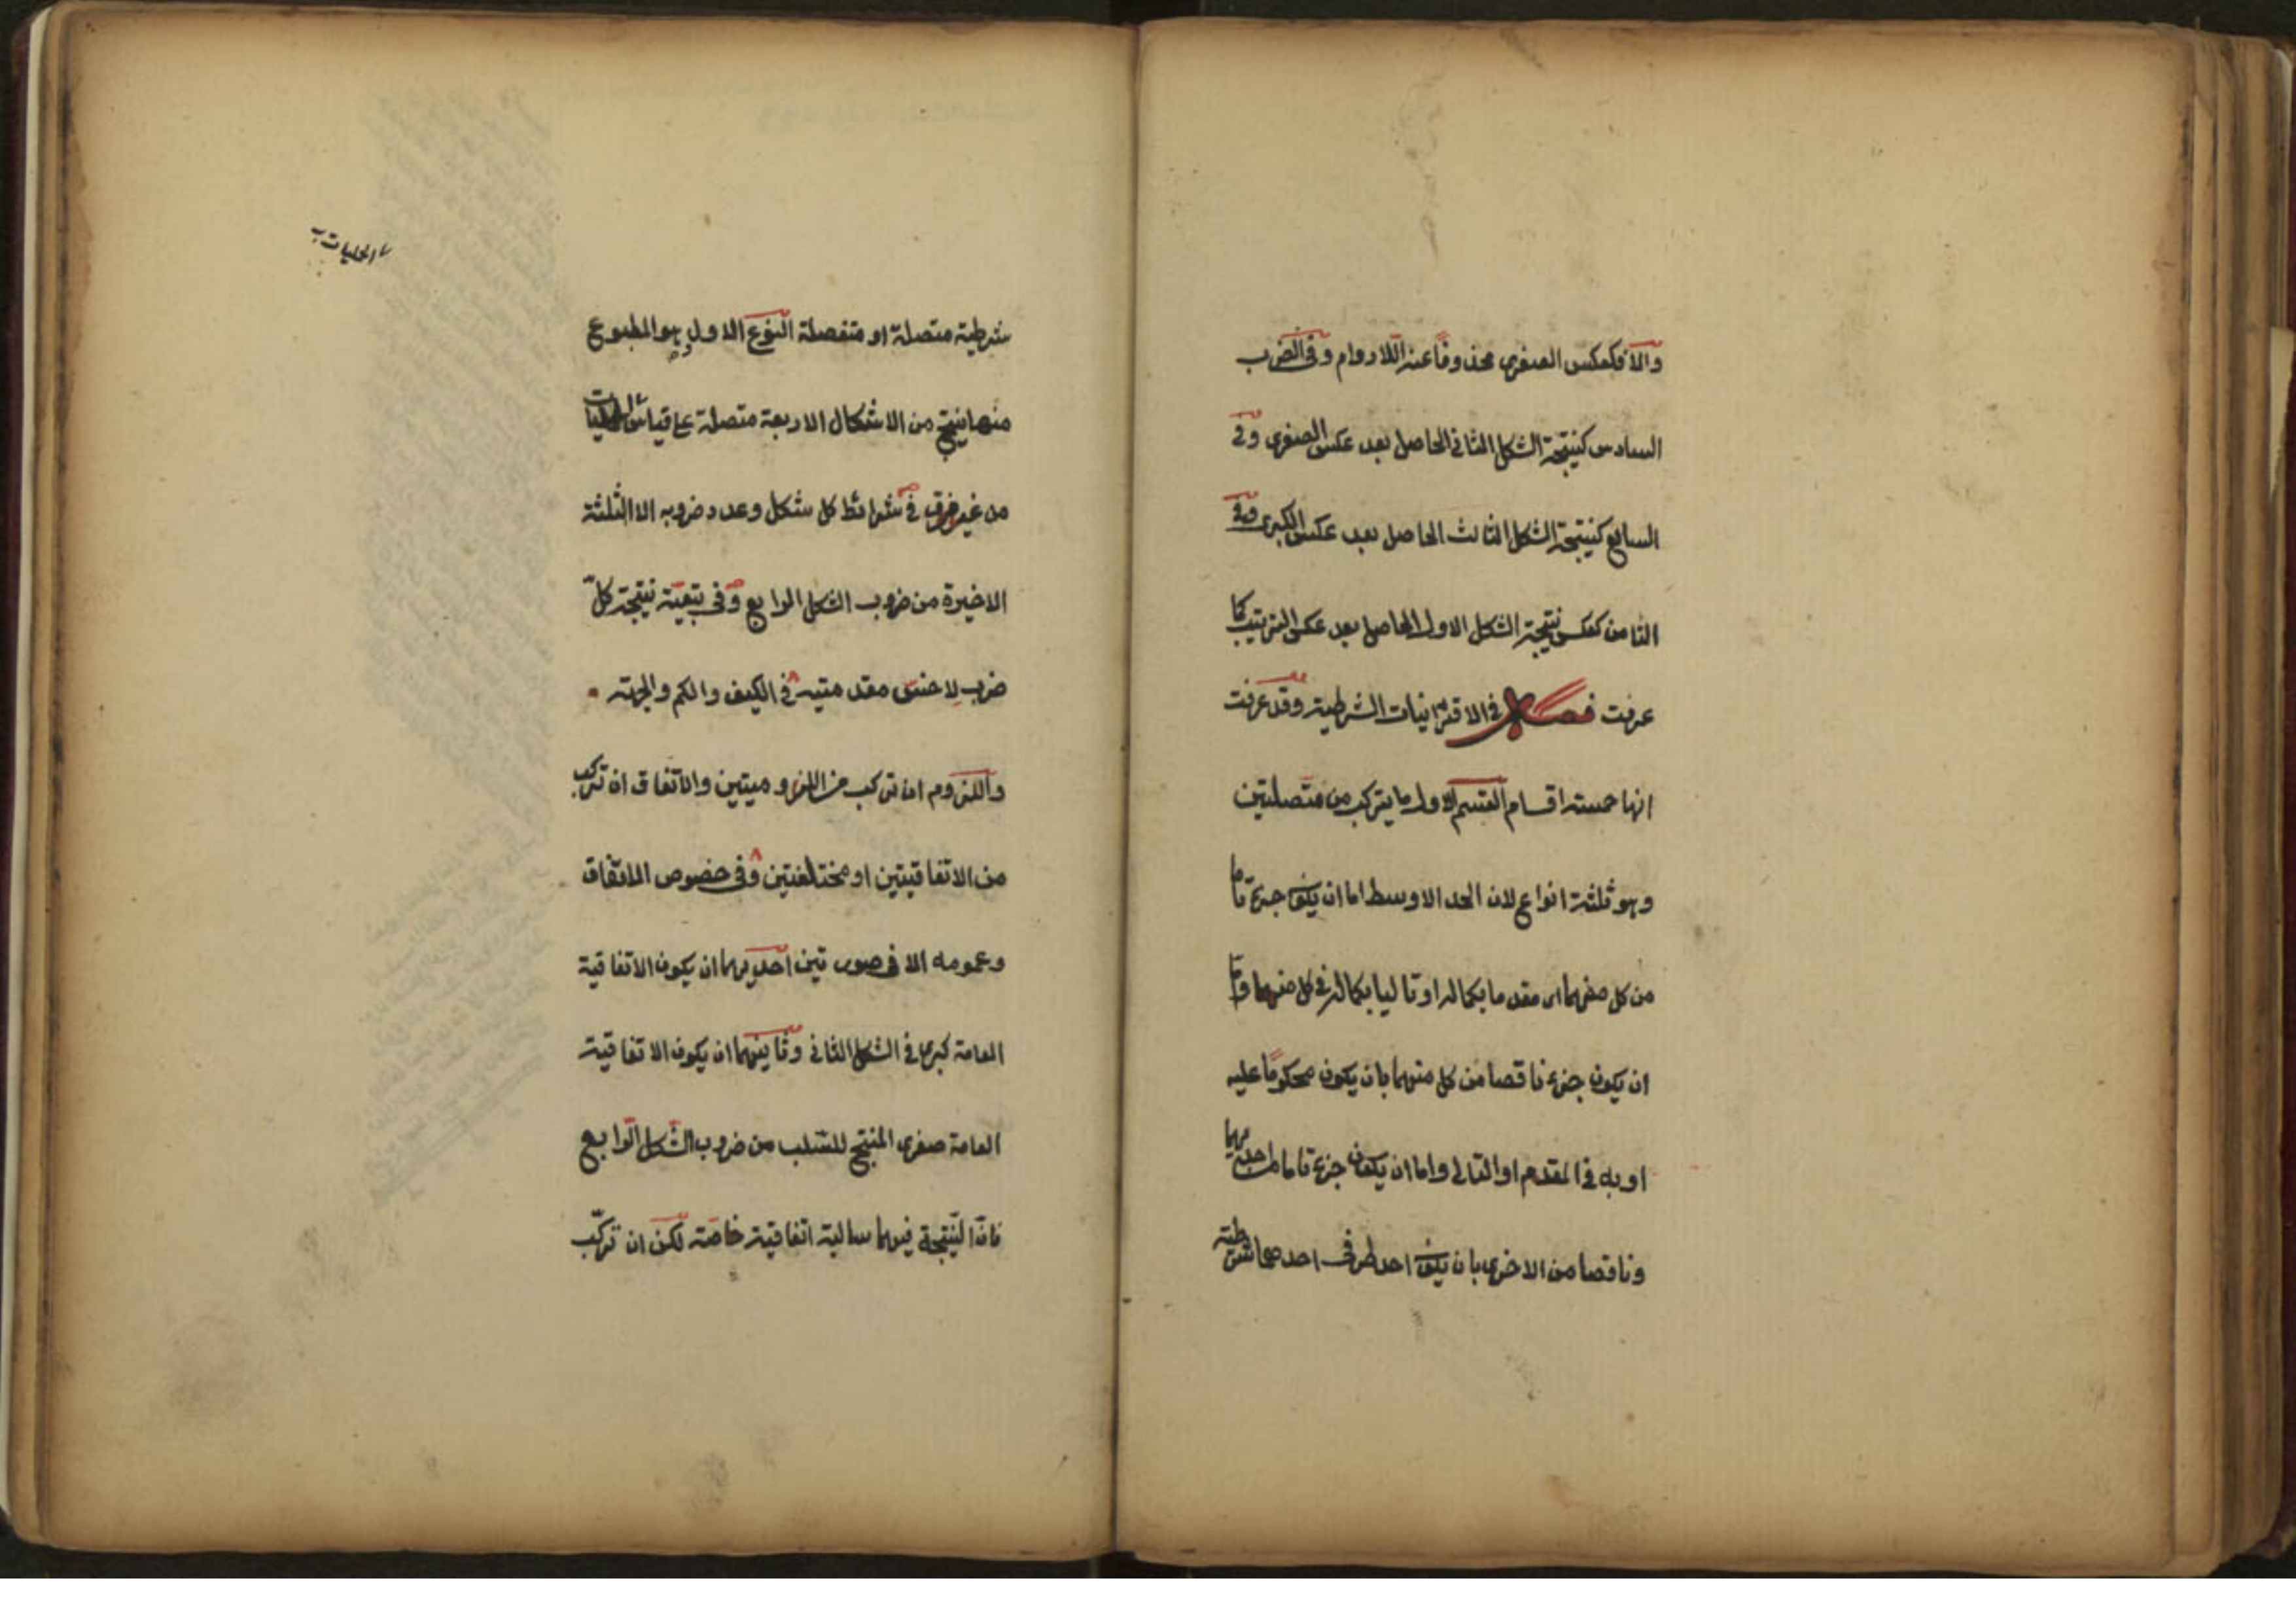 والا فكعكس الصغرى محذوفا عنه اللادوام وفي الضرب
السادس كنتيجة الشكل الثاني الحاصل بعد عكس الصغرى وفي
السابع كنتيجة الشكل الثالث الحاصل بعد عكس الكبرى وفي
الثامن كعكس نتيجة الشكل الاول الحاصل بعد عكس الترتيب كما
عرفت فصل في الاقترانيات الشرطية وقد عرفت
انها خمسة اقسام القسم الاول ما يتركب من متصلتين
وهو ثلثة انواع لان الحد الاوسط اما ان يكون جزء تاما
من كل منهما اى مقدما بكماله او تاليا بكماله في كل منهما واما
ان يكون جزء ناقصا من كل منهما بان يكون محكوما عليه
او به في المقدم او التالي واما ان يكون جزء تاما من احديهما
وناقصا من الاخرى بان يكون احد طرفى احديهما شرطية
شرطية متصلة او منفصلة النوع الاول وهو المطبوع
منها ينتج من الاشكال الاربعة متصلة على قياس الحمليات
من غير فرق في شرائط كل شكل وعدد ضروبه الا الثلثة
الاخيرة من ضروب الشكل الرابع وفي تبعية نتيجة كل
ضرب لاخس مقدمتيه في الكيف والكم والجهة
واللزوم ان تركب من اللزوميتين والاتفاق ان تركب
من الاتفاقيتين او مختلفتين وفي خصوص الاتفاق
وعمومه الا في صورتين احديهما ان يكون الاتفاقية
العامة كبرى في الشكل الثاني وثانيتهما ان يكون الاتفاقية
العامة صغرى المنتج للسلب من ضروب الشكل الرابع
فان النتيجة فيهما سالبة اتفاقية خاصة لكن ان تركب
الحمليات